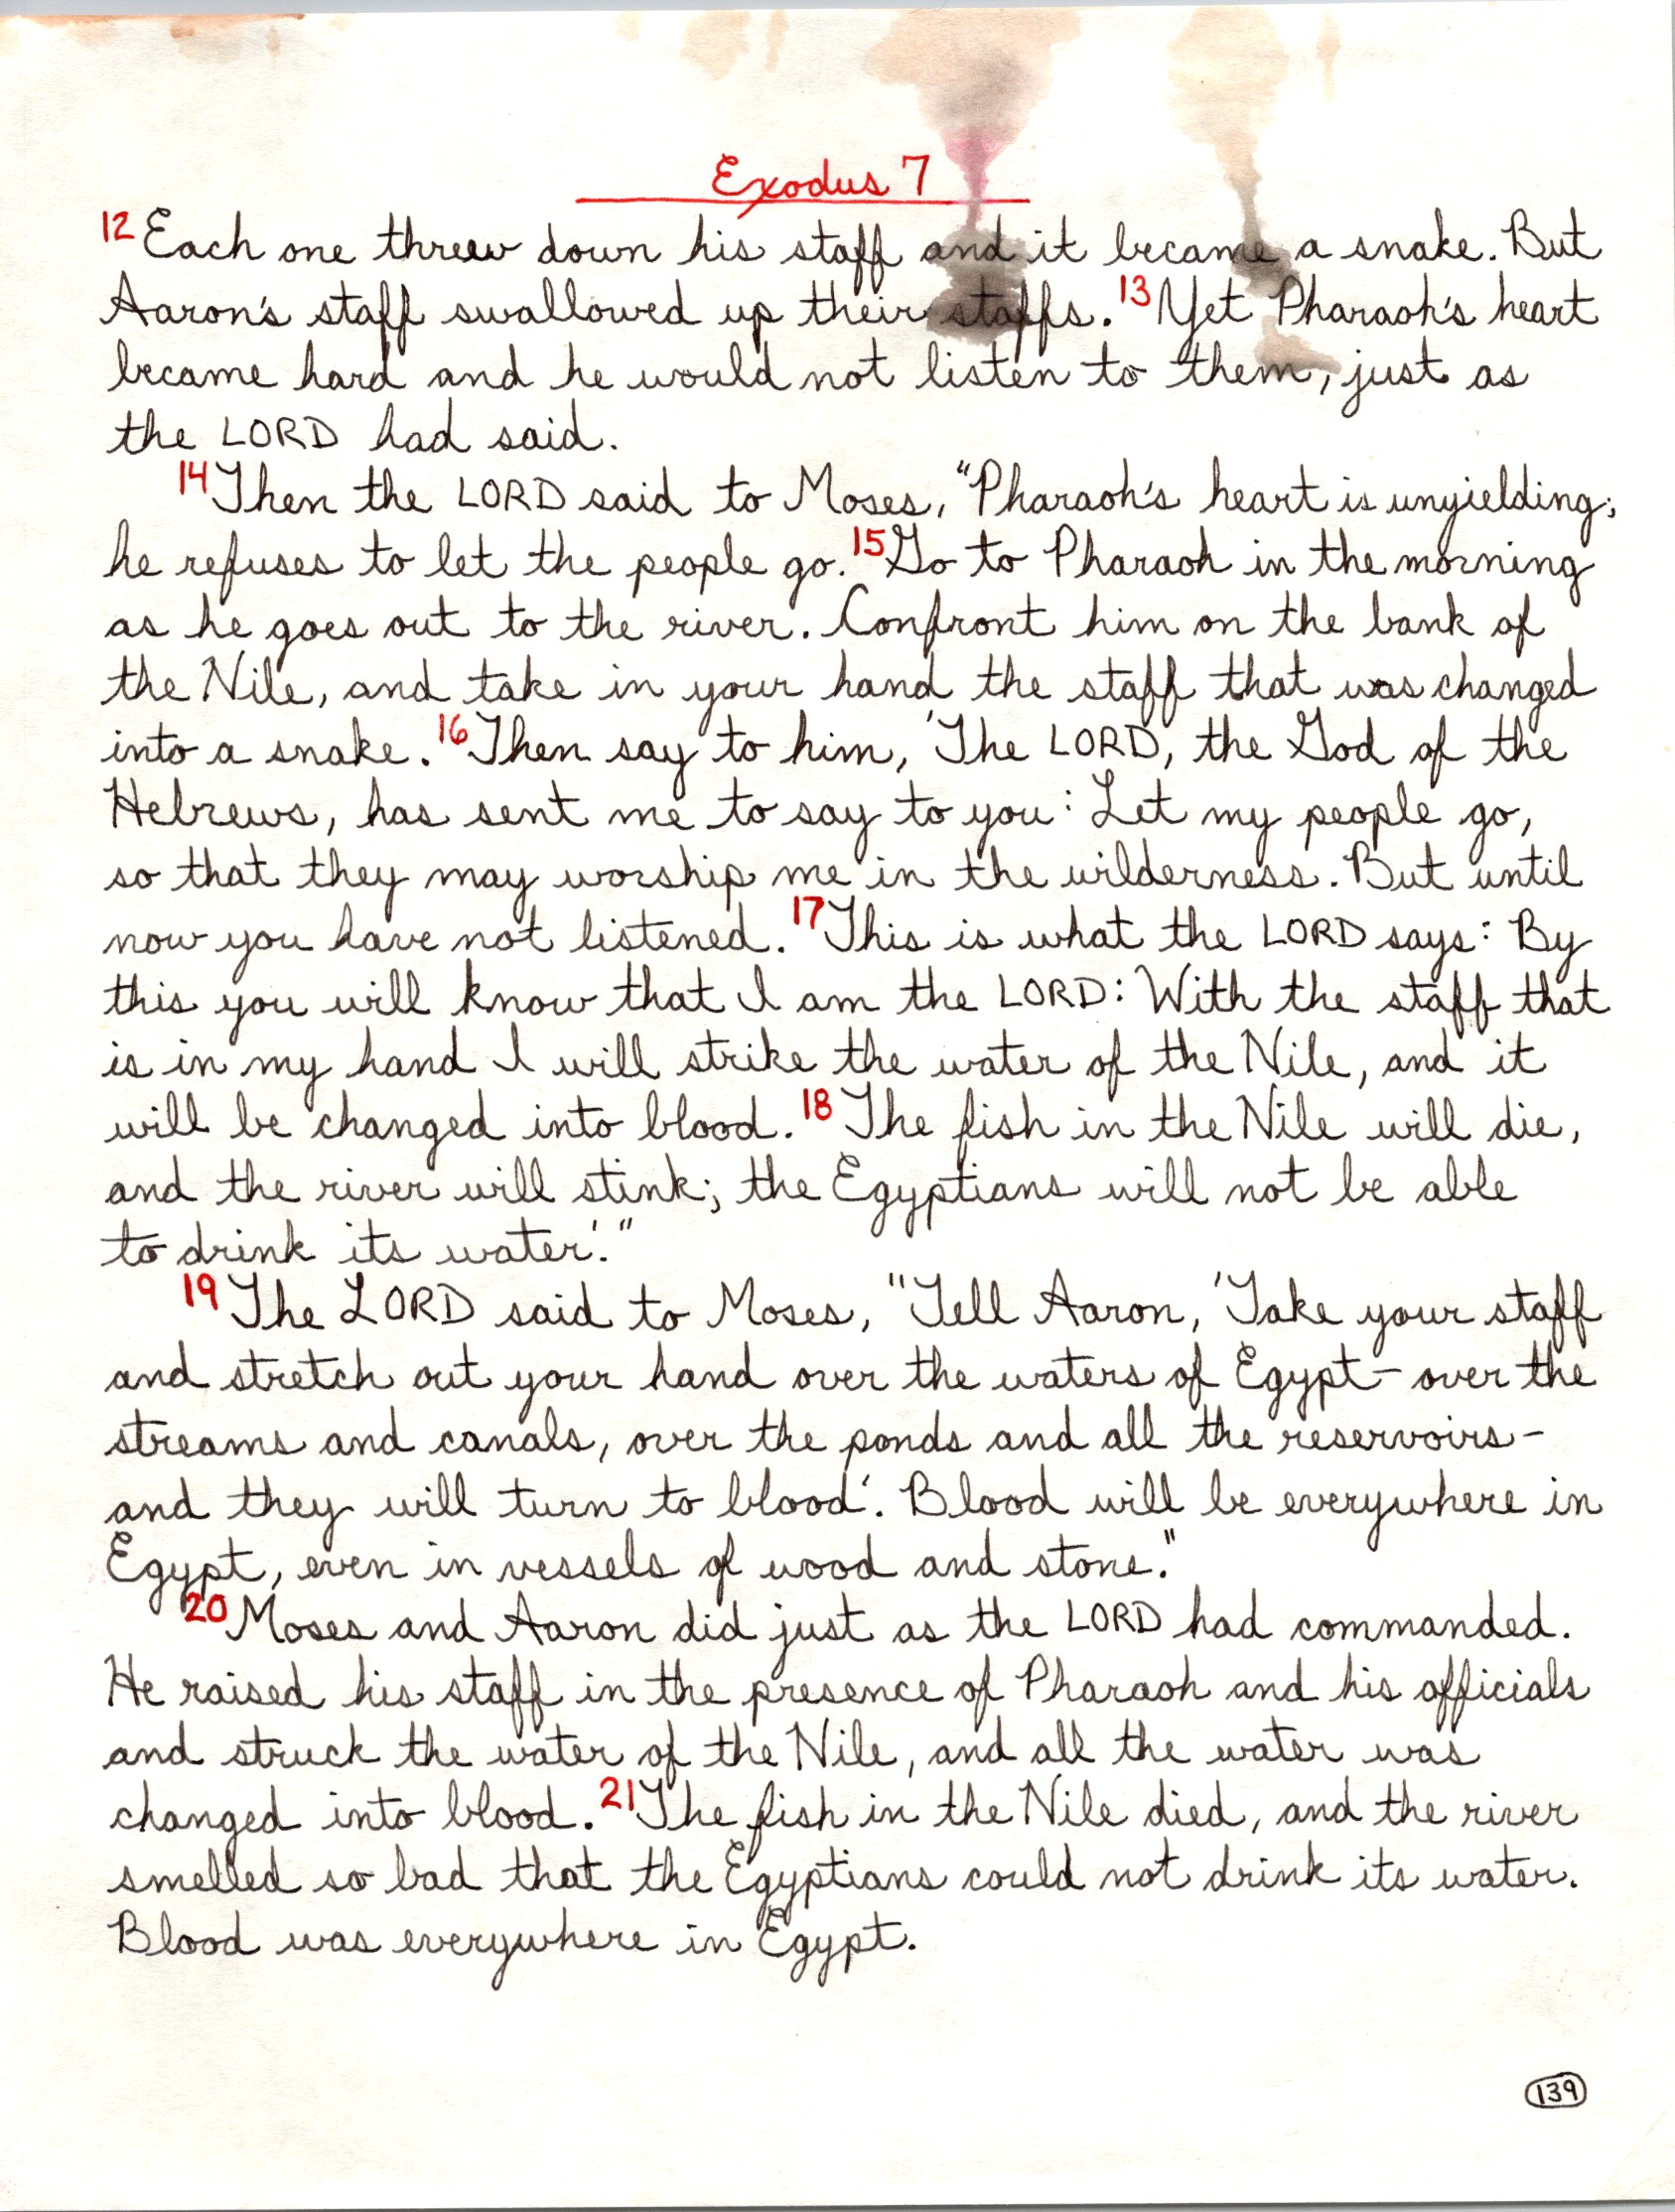 Exodus 7
12 Each one threw down his staff and it became a snake. But
Aaron's staff swallowed up their staffs. 13 Yet Pharaoh's heart
became hard and he would not listen to them, just as
the LORD had said.
14 Then the LORD said to Moses, "Pharaoh's heart is unyielding;
he refuses to let the people go. 15 Go to Pharaoh in the morning
as he goes out to the river. Confront him on the bank of
the Nile, and take in your hand the staff that was changed
into a snake. 16 Then say to him, 'The LORD, the God of the
Hebrews, has sent me to say to you: Let my people go,
so that they may worship me in the wilderness. But until
now you have not listened. 17 This is what the LORD says: By
this you will know that I am the LORD: With the staff that
is in my hand I will strike the water of the Nile, and it
will be changed into blood. 18 The fish in the Nile will die,
and the river will stink; the Egyptians will not be able
to drink its water.'"
19 The LORD said to Moses, "Tell Aaron, 'Take your staff
and stretch out your hand over the waters of Egypt - over the
streams and canals, over the ponds and all the reservoirs -
and they will turn to blood.' Blood will be everywhere in
Egypt, even in vessels of wood and stone."
20 Moses and Aaron did just as the LORD had commanded.
He raised his staff in the presence of Pharaoh and his officials
and struck the water of the Nile, and all the water was
changed into blood. 21 The fish in the Nile died, and the river
smelled so bad that the Egyptians could not drink its water.
Blood was everywhere in Egypt.
139